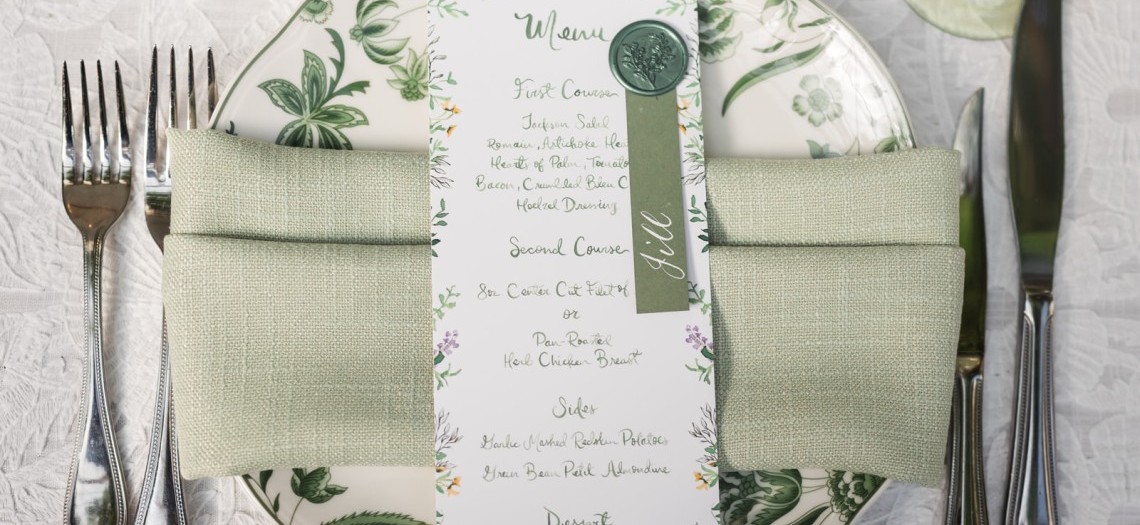 Menu
First Course
Jackson Salad
Romain, Artichoke Hea
Hearts of Palm, Tomato
Bacon, Crumbled Bleu C
Dressing
Second Course
8oz Center Cut Filet of
or
Pan-Roasted
Herb Chicken Breast
Sides
Garlic Mashed Redskin Potatoes
Green Bean Petit Almondine
Dessert
Jill